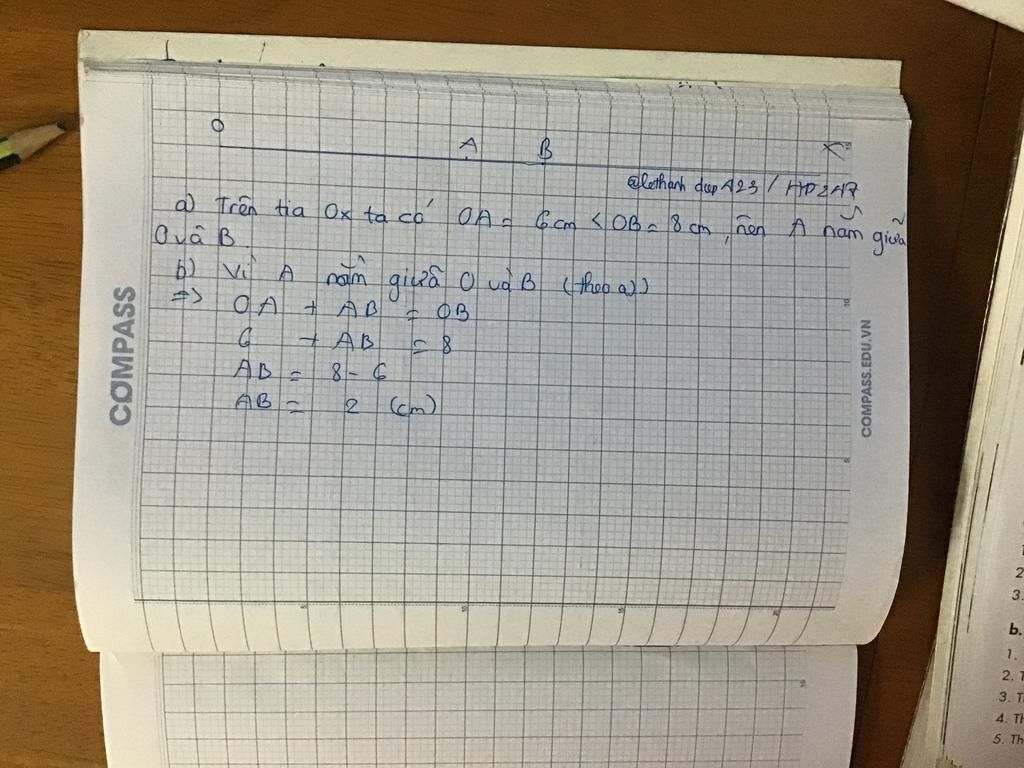 O
A B x
@lethanh dup A23 / HD247
a) Trên tia Ox ta có OA = 6cm < OB = 8cm, nên A nằm giữa
O và B
b) Vì A nằm giữa O và B (theo a))
=> OA + AB = OB
6 + AB = 8
AB = 8 - 6
AB = 2 (cm)
COMPASS
COMPASS.EDU.VN
2
3.
b.
1.
2. T
3. T
4. Th
5. Th